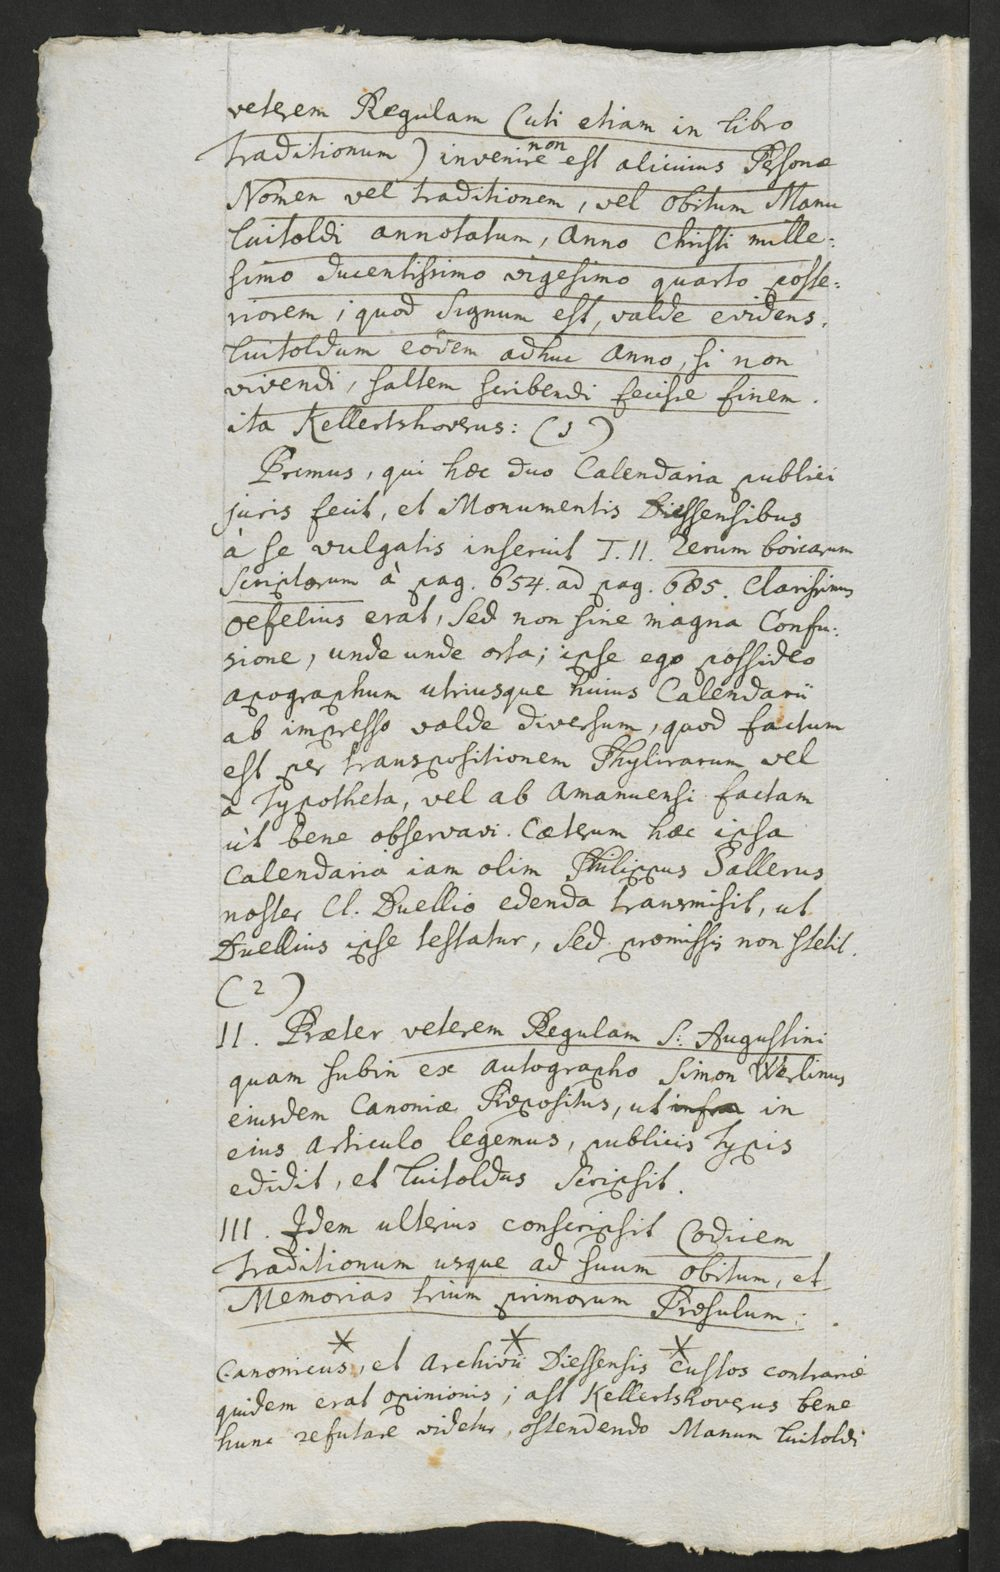 veterem Regulam (uti etiam in libro
traditionum) invenire non est alicuius Personæ
Nomen vel traditionem, vel obitum Manu
Luitoldi annotatum, Anno Christi mille:
simo ducentissimo vigesimo quarto poste:
riorem; quod signum est, valde evidens,
Luitoldum eodem adhuc Anno, si non
vivendi, saltem scribendi fecisse finem.
ita Kellertshoverus: (1)
Primus, qui hæc duo Calendaria publici
juris fecit, et Monumentis Diessensibus
à se vulgatis inseruit T. II. rerum boicarum
Scriptorum à pag. 654. ad pag. 685. Clarissimus
Oefelius erat, sed non sine magna Confu:
sione, unde unde orta; ipse ego possideo
apographum utriusque huius Calendarii
ab impresso valde diversum, quod factum
est per transpositionem Phylirarum vel
à Typotheta, vel ab Amanuensi factam
ùt bene observavi. Cæterum hæc ipsa
Calendaria iam olim Philippus Sallerus
noster Cl. Duellio edenda transmisit, ut
Duellius ipse testatur, sed promissis non stetit.
(2)
II. Præter veterem Regulam S: Augustini
quam subin ex autographo Simon Werlinus
eiusdem Canoniæ Præpositus, ut infra in
eius articulo legemus, publicis typis
edidit, et Luitoldus Scripsit.
III. Idem ulterius conscripsit Codicem
traditionum usque ad suum obitum, et
Memorias trium primorum Præsulum:
Canonicus, et Archivii Diessensis Custos contrariæ
quidem erat opinionis; ast Kellertshoverus bene
hunc refutare videtur, ostendendo Manum Luitoldi